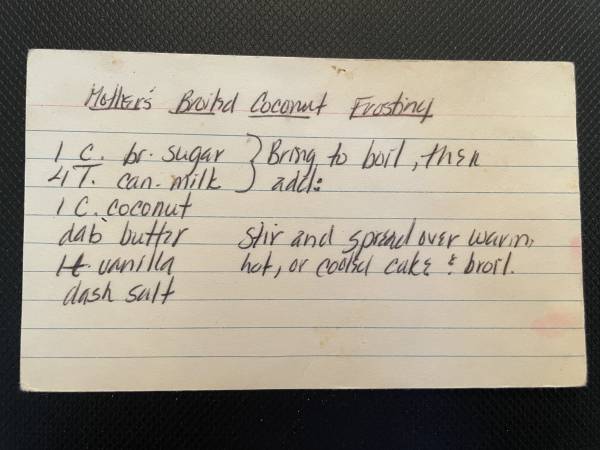 Mother's Broiled Coconut Frosting
1 C. br. sugar } Bring to boil, then
4 T. can. milk } add:
1 C. coconut
dab butter stir and spread over warm,
1 t. vanilla hot, or cooled cake & broil.
dash salt